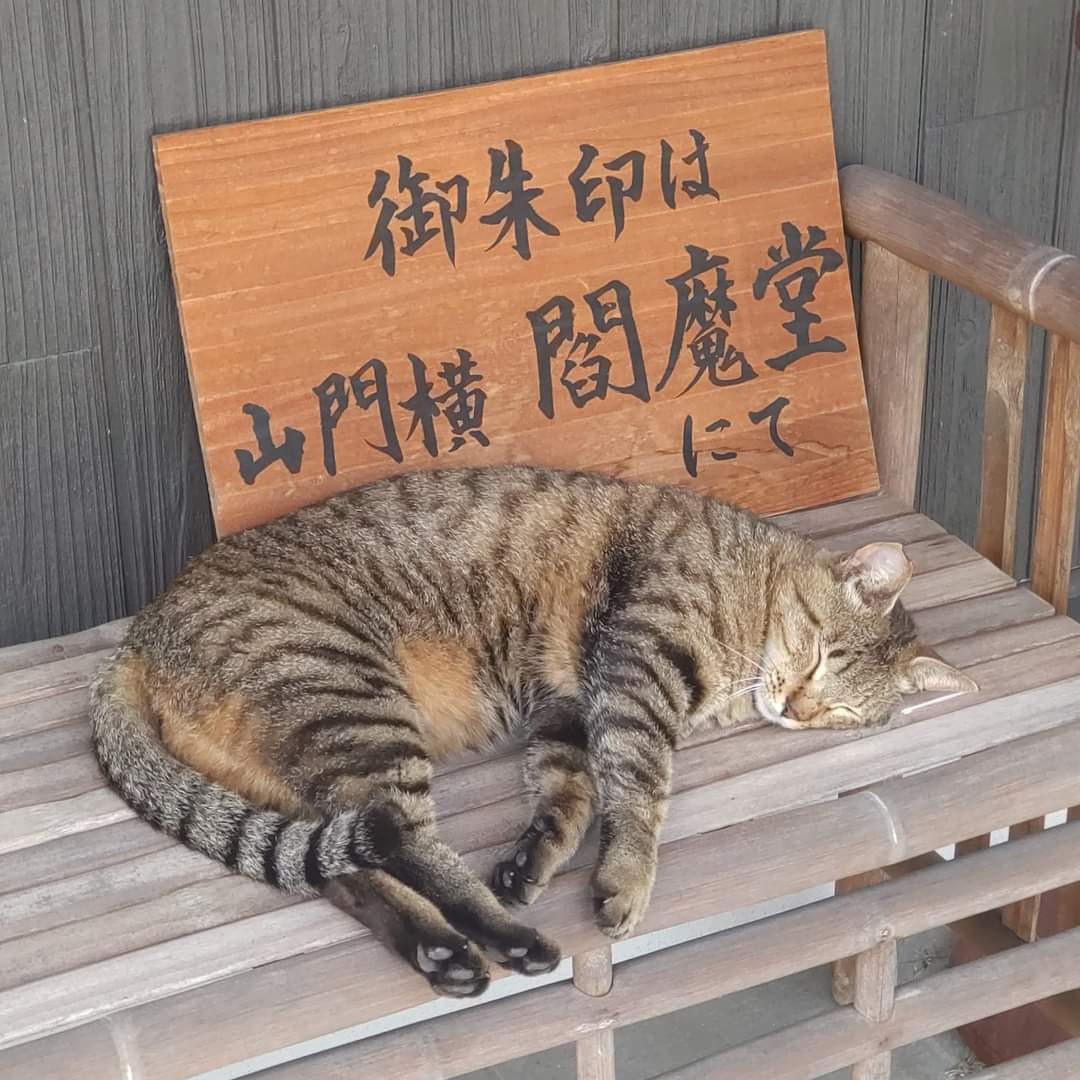 御朱印は
山門横 閻魔堂
にて